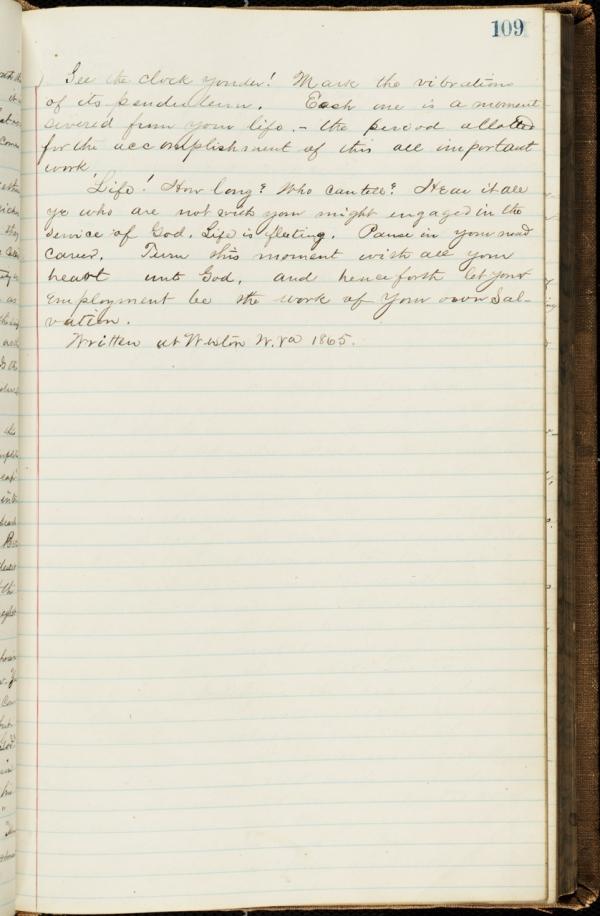 109
See the clock yonder! Mark the vibrations
of its pendulum. Each one is a moment
severed from your life. - the period allotted
for the accomplishment of this all important
work.
Life! How long? Who can tell? Hear it all
ye who are not with your might engaged in the
service of God. Life is fleeting. Pause in your mad
career. Turn this moment with all your
heart unto God, and henceforth let your
employment be the work of your own Sal-
vation.
Written at Weston W.Va 1865.